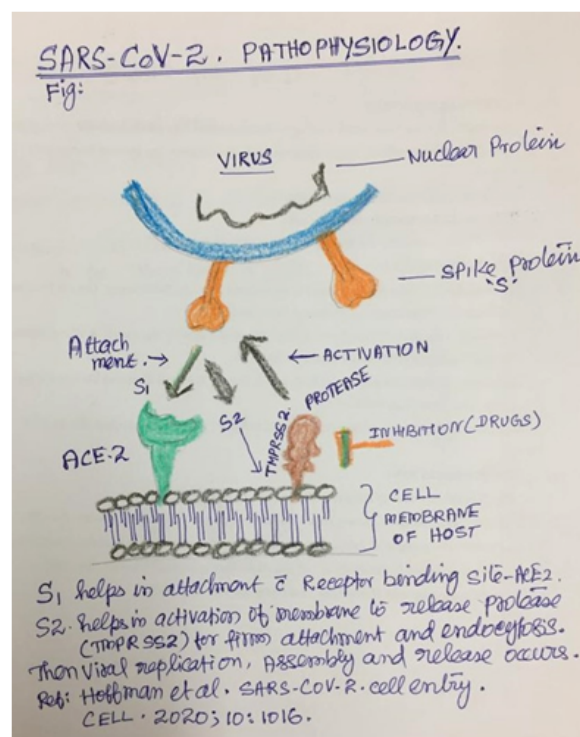 SARS-CoV-2. PATHOPHYSIOLOGY.
Fig:
VIRUS
Nuclear Protein
Spike Protein
"S"
Attach
ment.
ACTIVATION
S1
S2
TMPRSS2.
PROTEASE
INHIBITION (DRUGS)
ACE-2
CELL
MEMBRANE
OF HOST
S1 helps in attachment c̄ Receptor binding Site-ACE2.
S2. helps in activation of membrane to release protease
(TMPRSS2) for firm attachment and endocytosis.
Then Viral replication, Assembly and release occurs.
Ref: Hoffman et al. SARS-COV-2. cell entry.
CELL. 2020; 10: 1016.